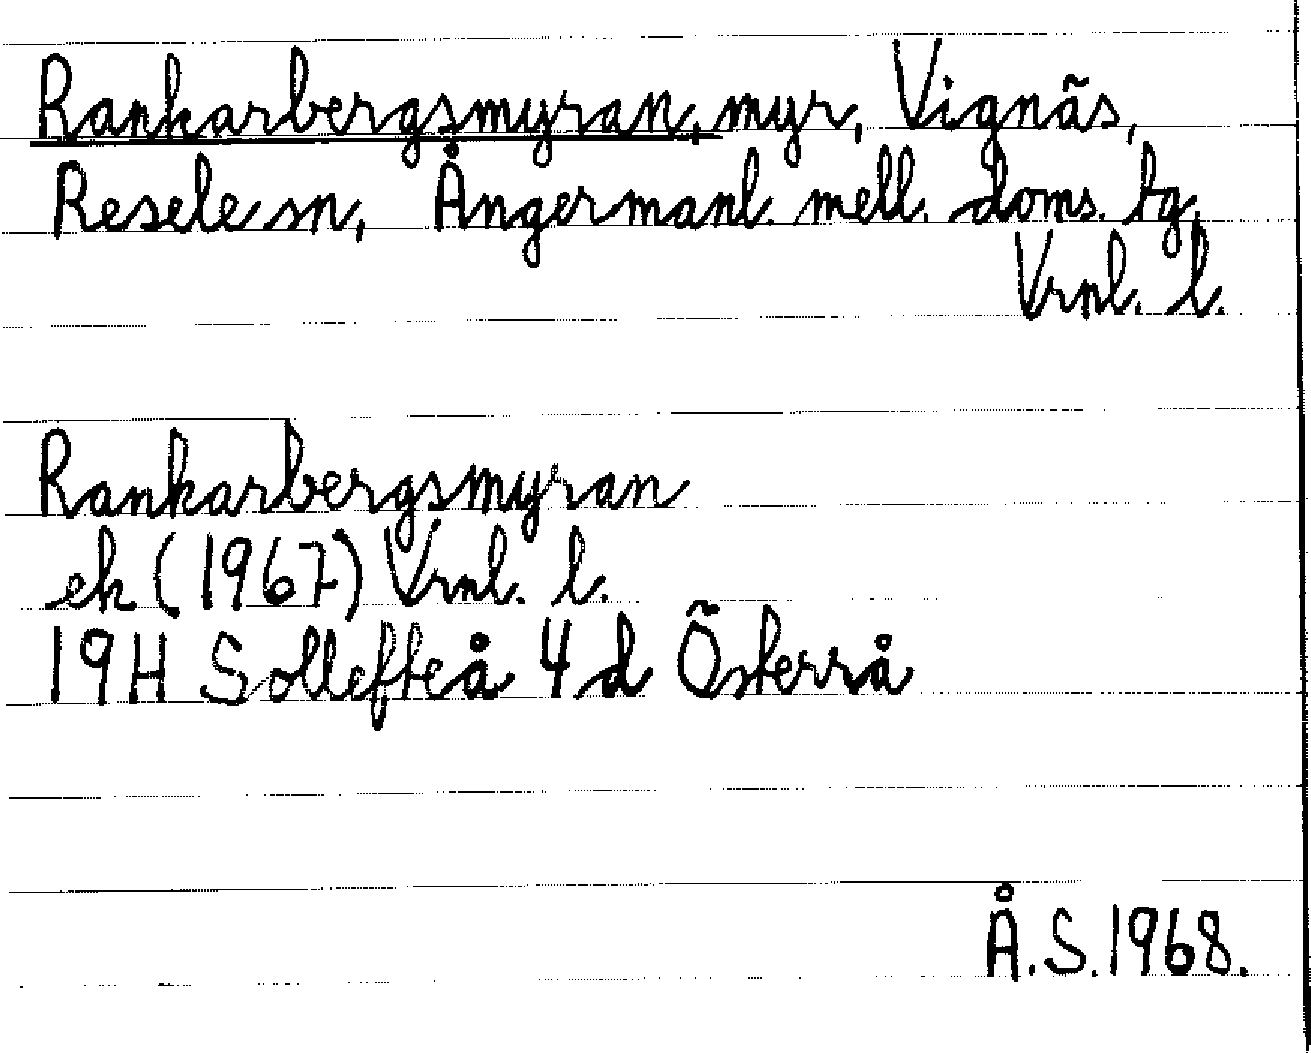 Rankarbergsmyran, myr, Vignäs,
Resele sn, Ångermanl. mell. doms. tg,
Vrnl. l.
Rankarbergsmyran
ek (1967) Vrnl. l.
19H Sollefteå 4d Österrå
Å.S.1968.